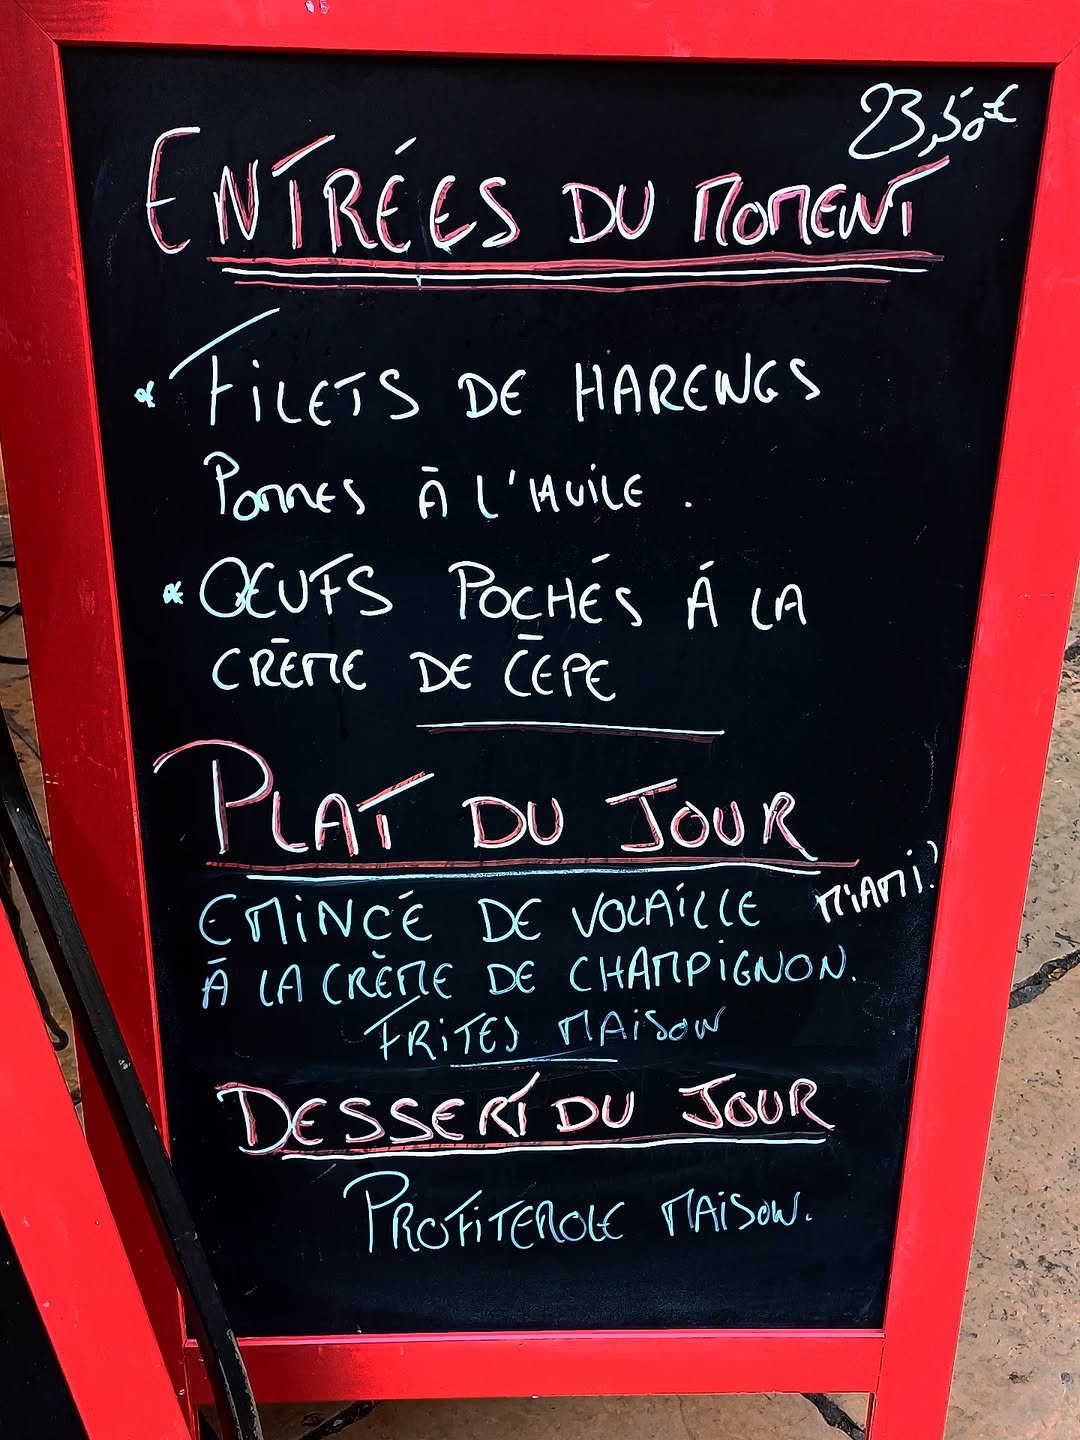 23,50€
ENTRÉES DU MOMENT
* FILETS DE HARENGS
POMMES À L'HUILE.
* ŒUFS POCHÉS À LA
CRÈME DE CEPE
PLAT DU JOUR
EMINCÉ DE VOLAILLE MIAM!
À LA CRÈME DE CHAMPIGNON.
FRITES MAISON
DESSERT DU JOUR
PROFITEROLE MAISON.